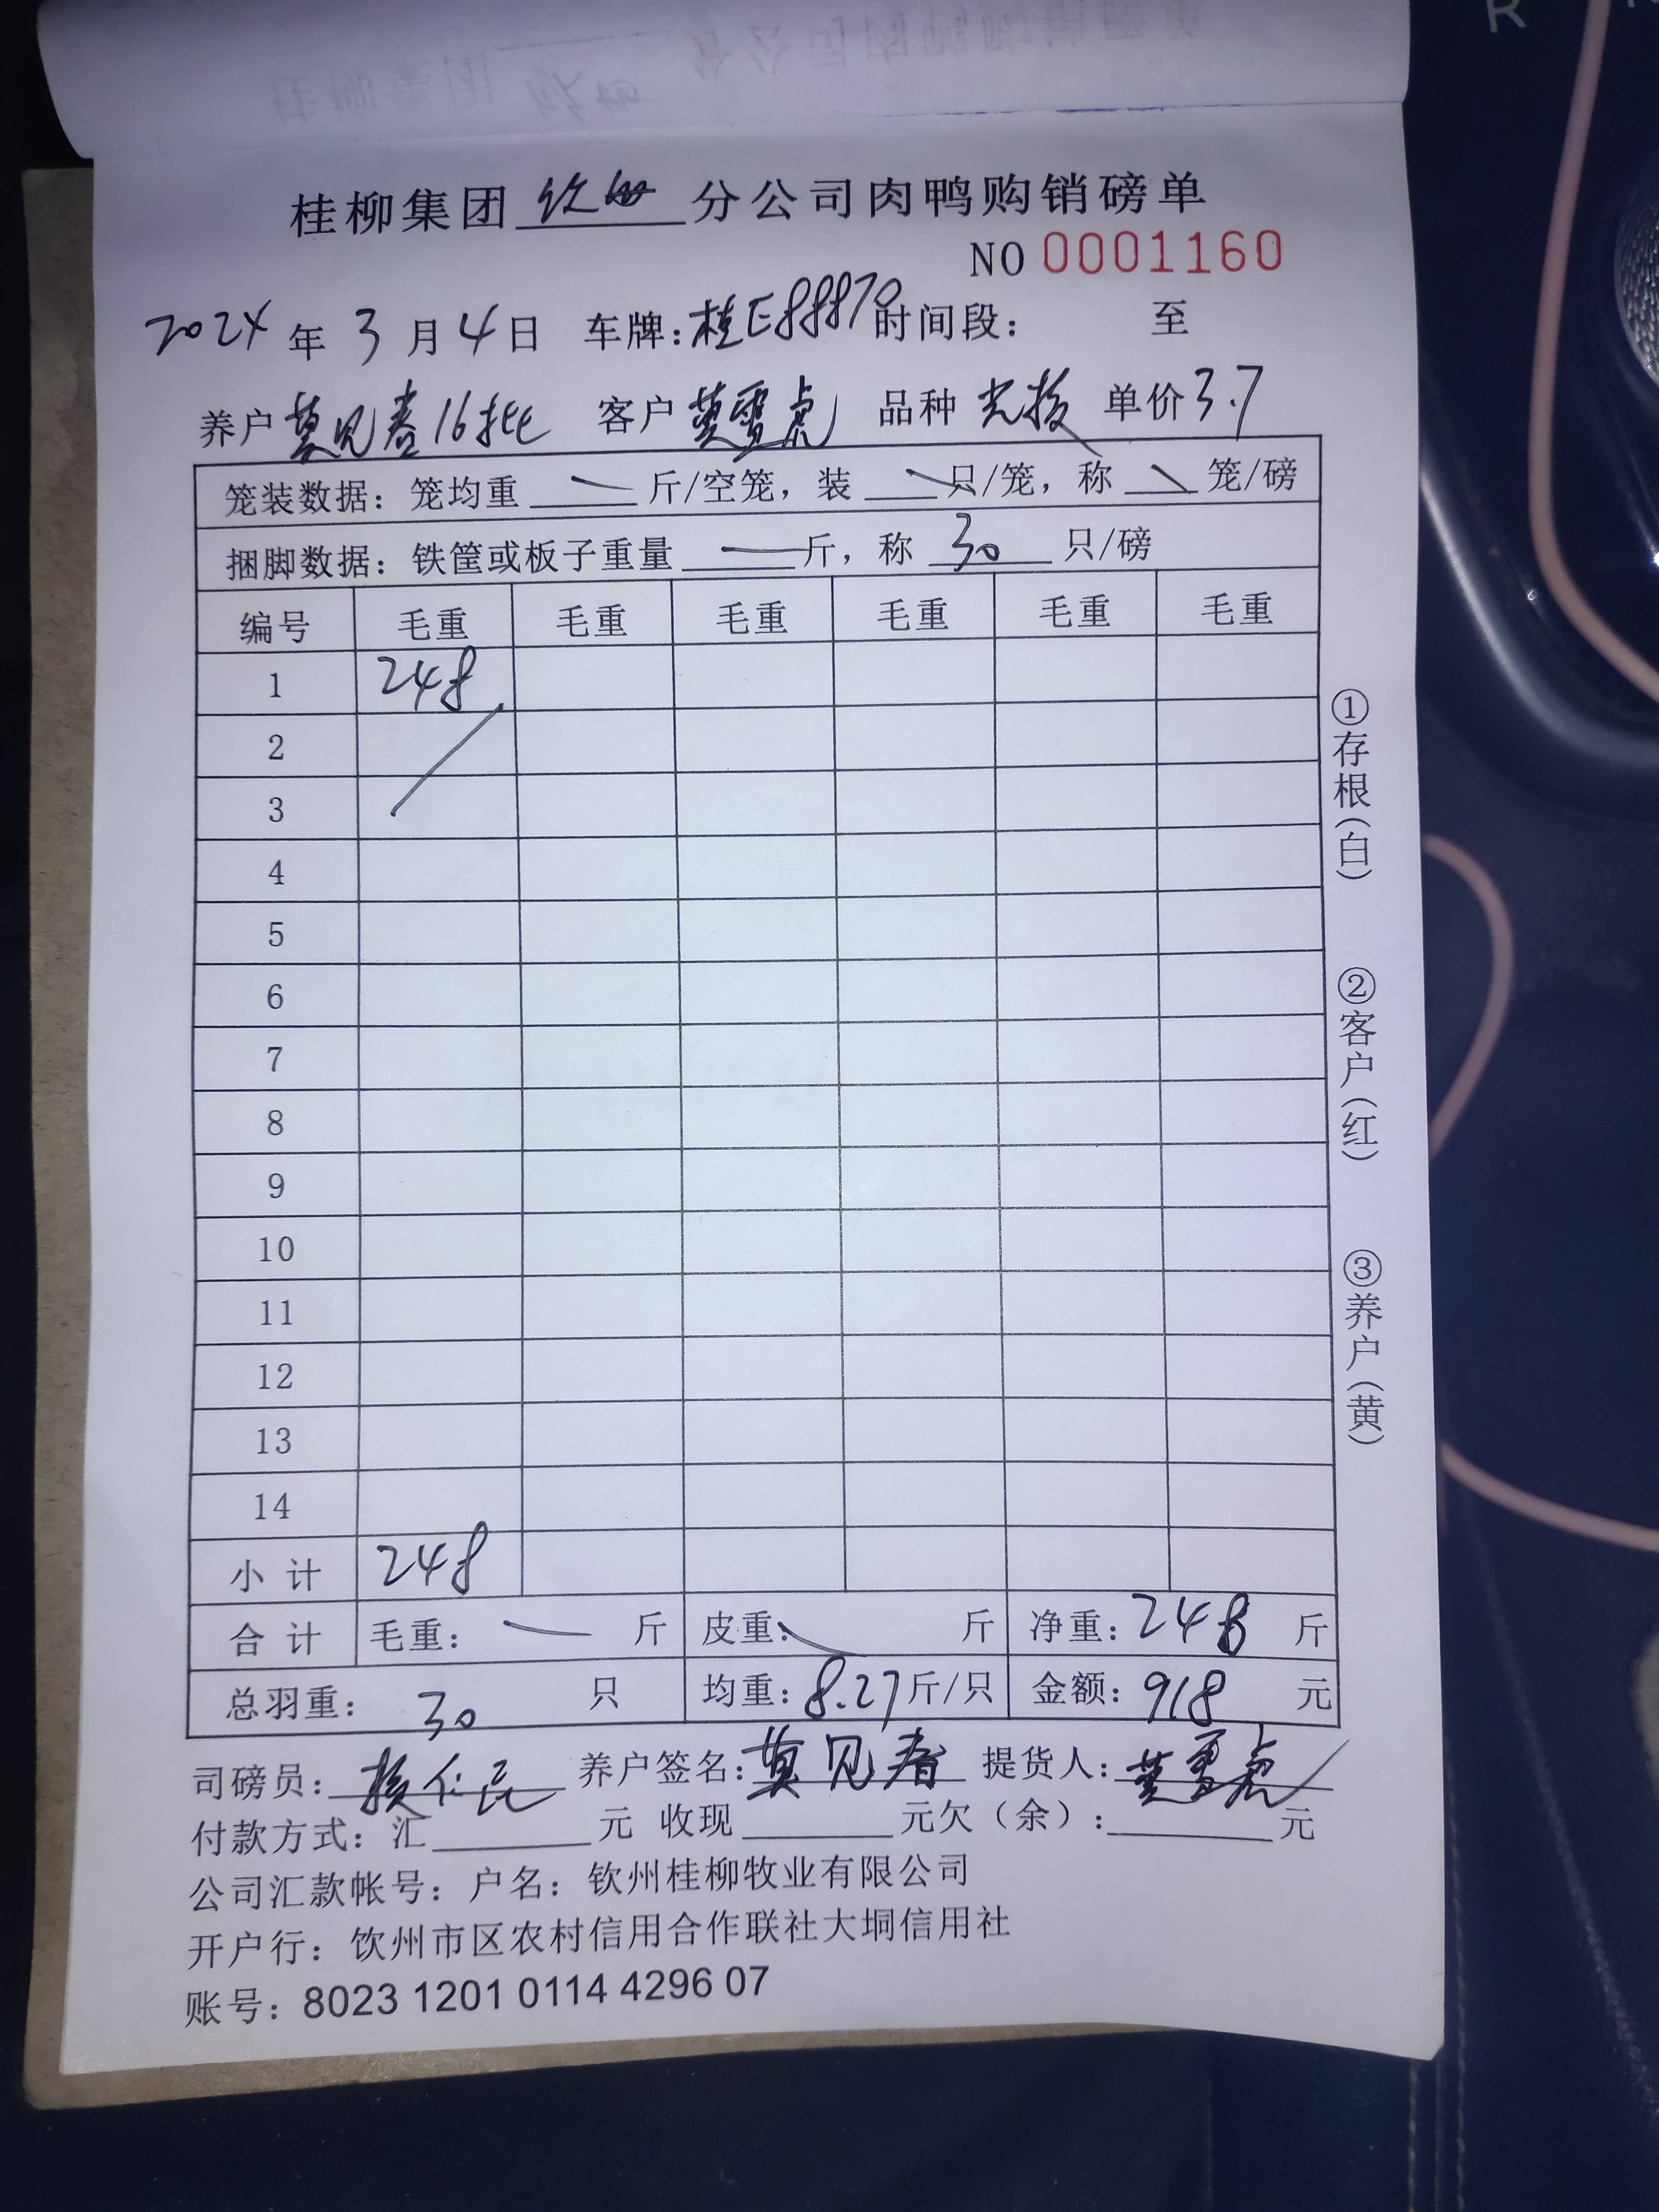 桂柳集团 钦州 分公司肉鸭购销磅单
NO 0001160
2024 年 3 月 4 日 车牌:桂E88870 时间段: 至
养户 莫见春16批 客户 黄雪虎 品种 单价3.7
笼装数据: 笼均重 — 斤/空笼, 装 — 只/笼, 称 — 笼/磅
捆脚数据: 铁筐或板子重量 — 斤, 称 30 只/磅
编号 毛重 毛重 毛重 毛重 毛重 毛重
1 248
2
3
4
5
6
7
8
9
10
11
12
13
14
小计 248
合计 毛重: — 斤 皮重: 斤 净重: 248 斤
总羽重: 30 只 均重: 8.27斤/只 金额: 918 元
司磅员: 仁民 养户签名: 莫见春 提货人: 黄雪虎
付款方式: 汇 元 收现 元欠(余): 元
公司汇款帐号: 户名: 钦州桂柳牧业有限公司
开户行: 钦州市区农村信用合作联社大垌信用社
账号: 8023 1201 0114 4296 07
①存根(白)
②客户(红)
③养户(黄)
R